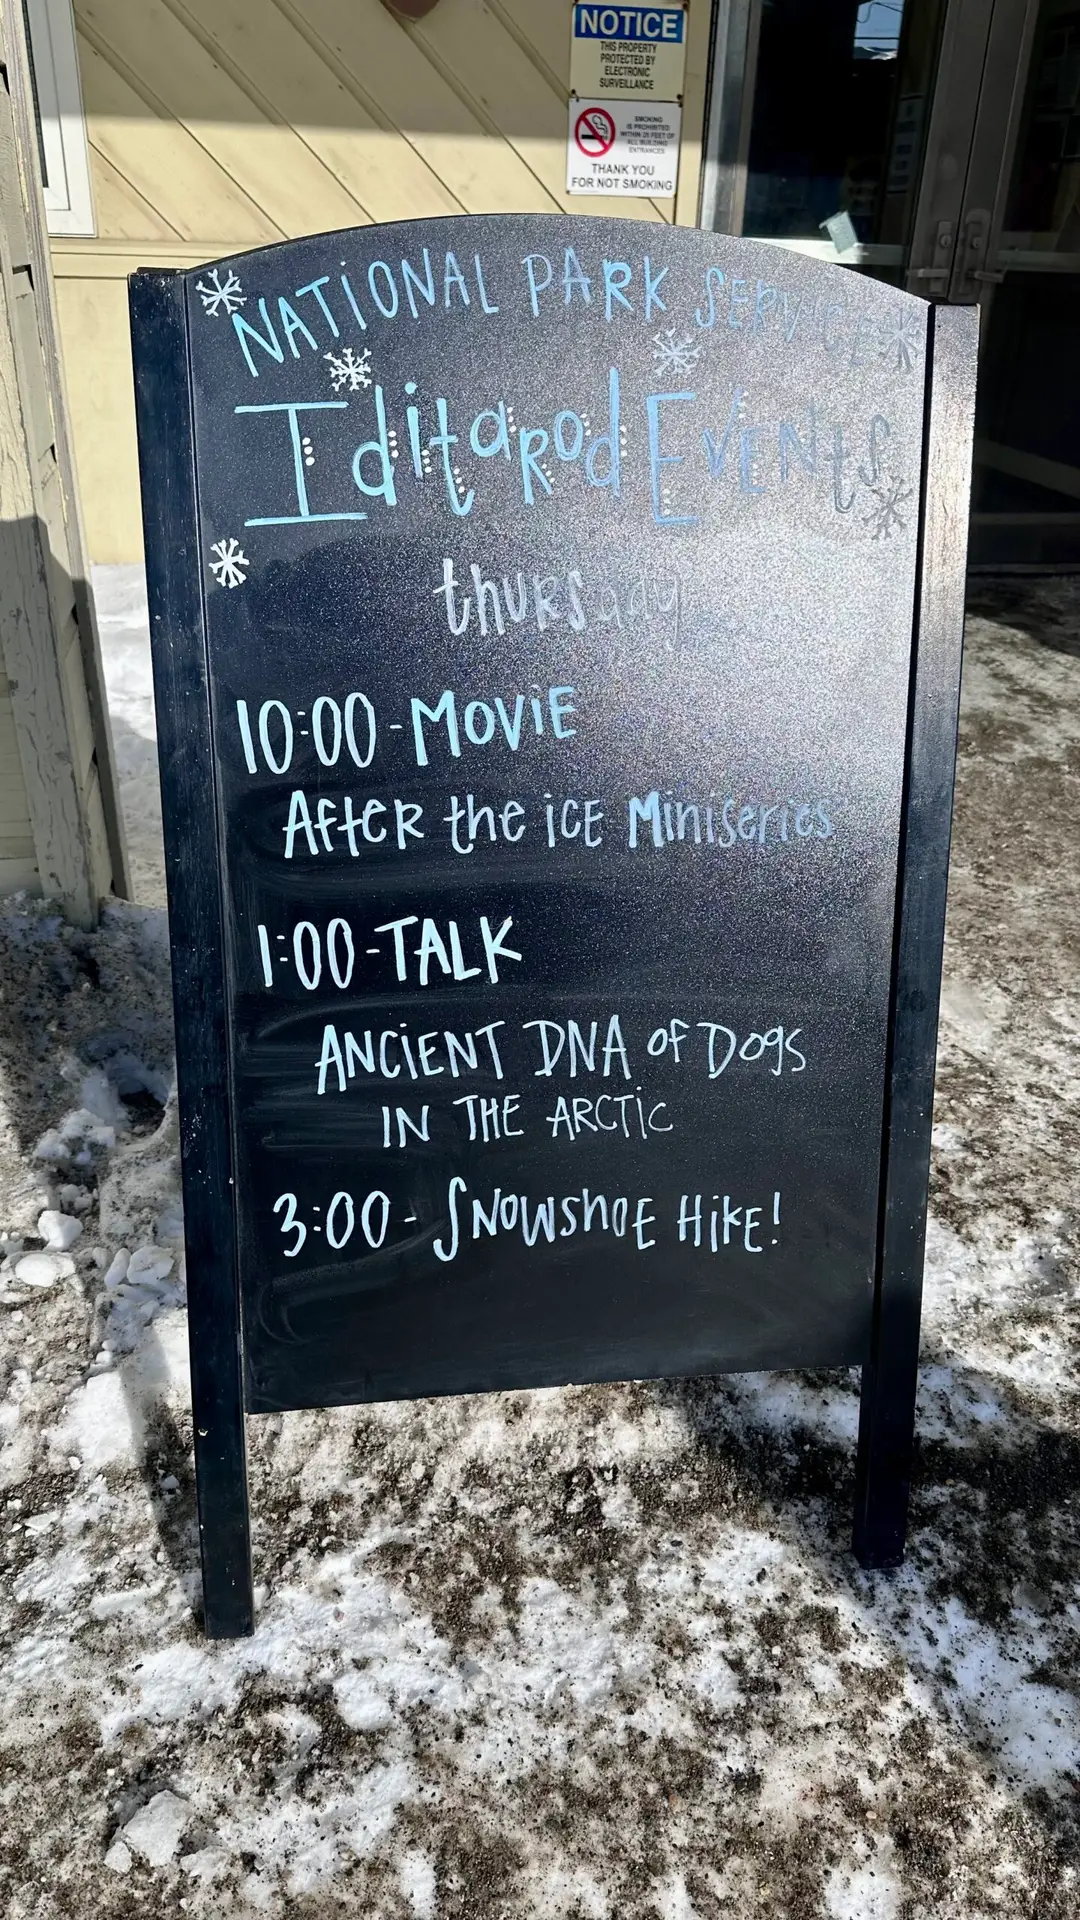 NOTICE
THIS PROPERTY
PROTECTED BY
ELECTRONIC
SURVEILLANCE
SMOKING
IS PROHIBITED
WITHIN 25 FEET OF
ALL BUILDING
ENTRANCES
THANK YOU
FOR NOT SMOKING
NATIONAL PARK SERVICE
Iditarod Events
thursday
10:00-MOVIE
After the ice Miniseries
1:00-TALK
ANCIENT DNA of Dogs
IN THE ARCTIC
3:00- SNOWSHOE HIKE!